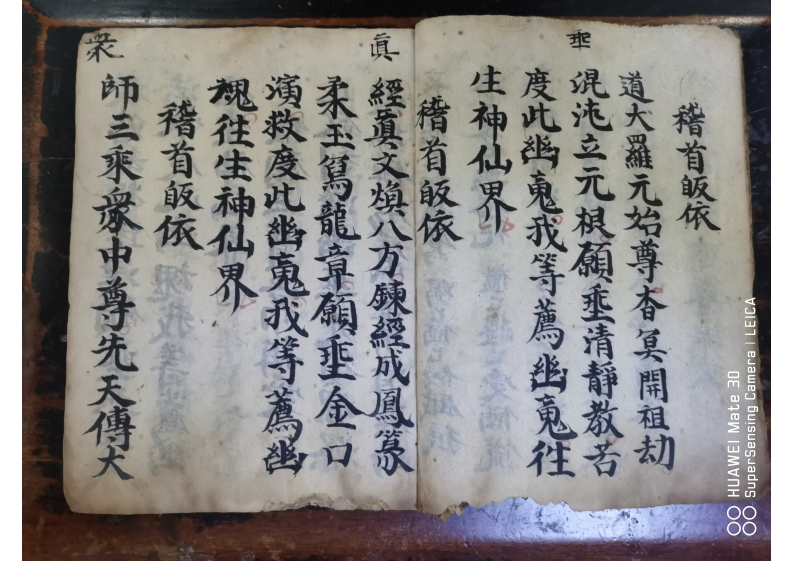 垂
稽首皈依
道大羅元始尊杳冥開祖劫
混沌立元根願垂清靜教苦
度此幽䰟我等薦幽䰟往
生神仙界
稽首皈依
真
經真文煥八方鍊經成鳳篆
柔玉篤龍章願垂金口
演救度此幽䰟我等薦幽
魂往生神仙界
稽首皈依
衆
師三乘衆中尊先天傳大
HUAWEI Mate 30
SuperSensing Camera | LEICA